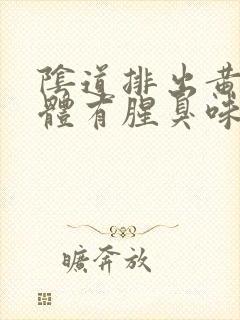 陰道排出黃
體有腥臭味
曠奔放